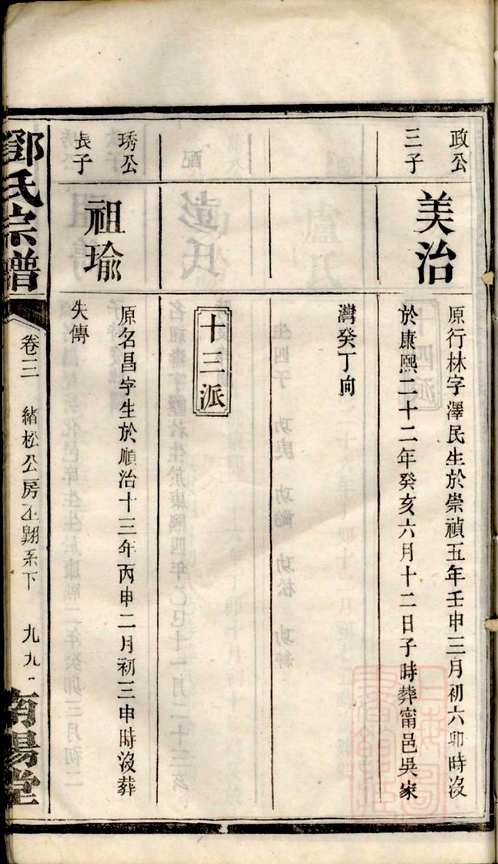 政公
三子
美治
原行林字澤民生於崇禎五年壬申三月初六卯時没
於康熙二十二年癸亥六月十二日子時葬甯邑吳家
灣癸丁向
十三派
琇公
長子
祖瑜
原名昌字生於順治十三年丙申二月初三申時没葬
失傳
鄧氏宗譜
卷三
緒松公房
系下
九九
南陽堂